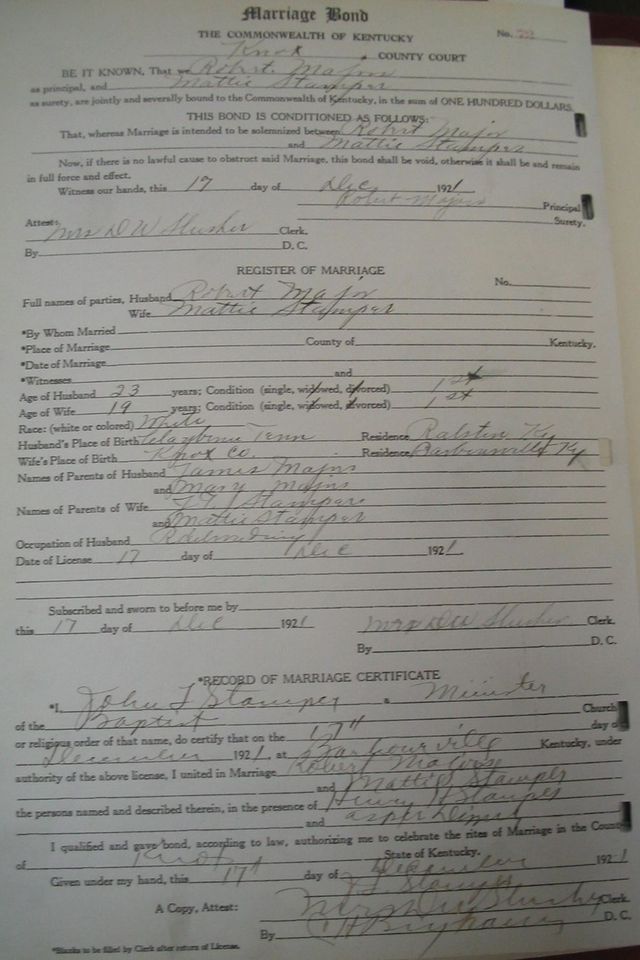 Marriage Bond
THE COMMONWEALTH OF KENTUCKY No.
Knox COUNTY COURT
BE IT KNOWN, That we Robert Majors
as principal, and Mattie Stamper
as surety, are jointly and severally bound to the Commonwealth of Kentucky, in the sum of ONE HUNDRED DOLLARS.
THIS BOND IS CONDITIONED AS FOLLOWS:
That, whereas Marriage is intended to be solemnized between Robert Major
and Mattie Stamper
Now, if there is no lawful cause to obstruct said Marriage, this bond shall be void, otherwise it shall be and remain
in full force and effect.
Witness our hands, this 17 day of Dec 1921
Robert Majors Principal
Surety.
Attest:
Mrs D W Slusher Clerk.
By D. C.
REGISTER OF MARRIAGE
No.
Full names of parties, Husband Robert Major
Wife Mattie Stamper
*By Whom Married
*Place of Marriage County of Kentucky.
*Date of Marriage
*Witnesses and
Age of Husband 23 years; Condition (single, widowed, divorced) 1st
Age of Wife 19 years; Condition (single, widowed, divorced) 1st
Race: (white or colored) White
Husband's Place of Birth Tenn Residence Ralston Ky
Wife's Place of Birth Knox Co. Residence Barbourville Ky
Names of Parents of Husband James Majors
and Mary Majors
Names of Parents of Wife Stamper
and Mattie Stamper
Occupation of Husband
Date of License 17 day of Dec 1921
Subscribed and sworn to before me by
this 17 day of Dec 1921 Mrs D W Slusher Clerk.
By D. C.
*RECORD OF MARRIAGE CERTIFICATE
*I, John Stamper a Minister
of the Baptist Church
or religious order of that name, do certify that on the 17" day of
December 1921, at Barbourville Kentucky, under
authority of the above license, I united in Marriage Robert
and Mattie Stamper
the persons named and described therein, in the presence of Henry H Stamper
and
I qualified and gave bond, according to law, authorizing me to celebrate the rites of Marriage in the County
of Knox State of Kentucky.
Given under my hand, this 17" day of December 1921
Stamper
A Copy, Attest: Mrs D W Slusher Clerk.
By D. C.
*Blanks to be filled by Clerk after return of License.